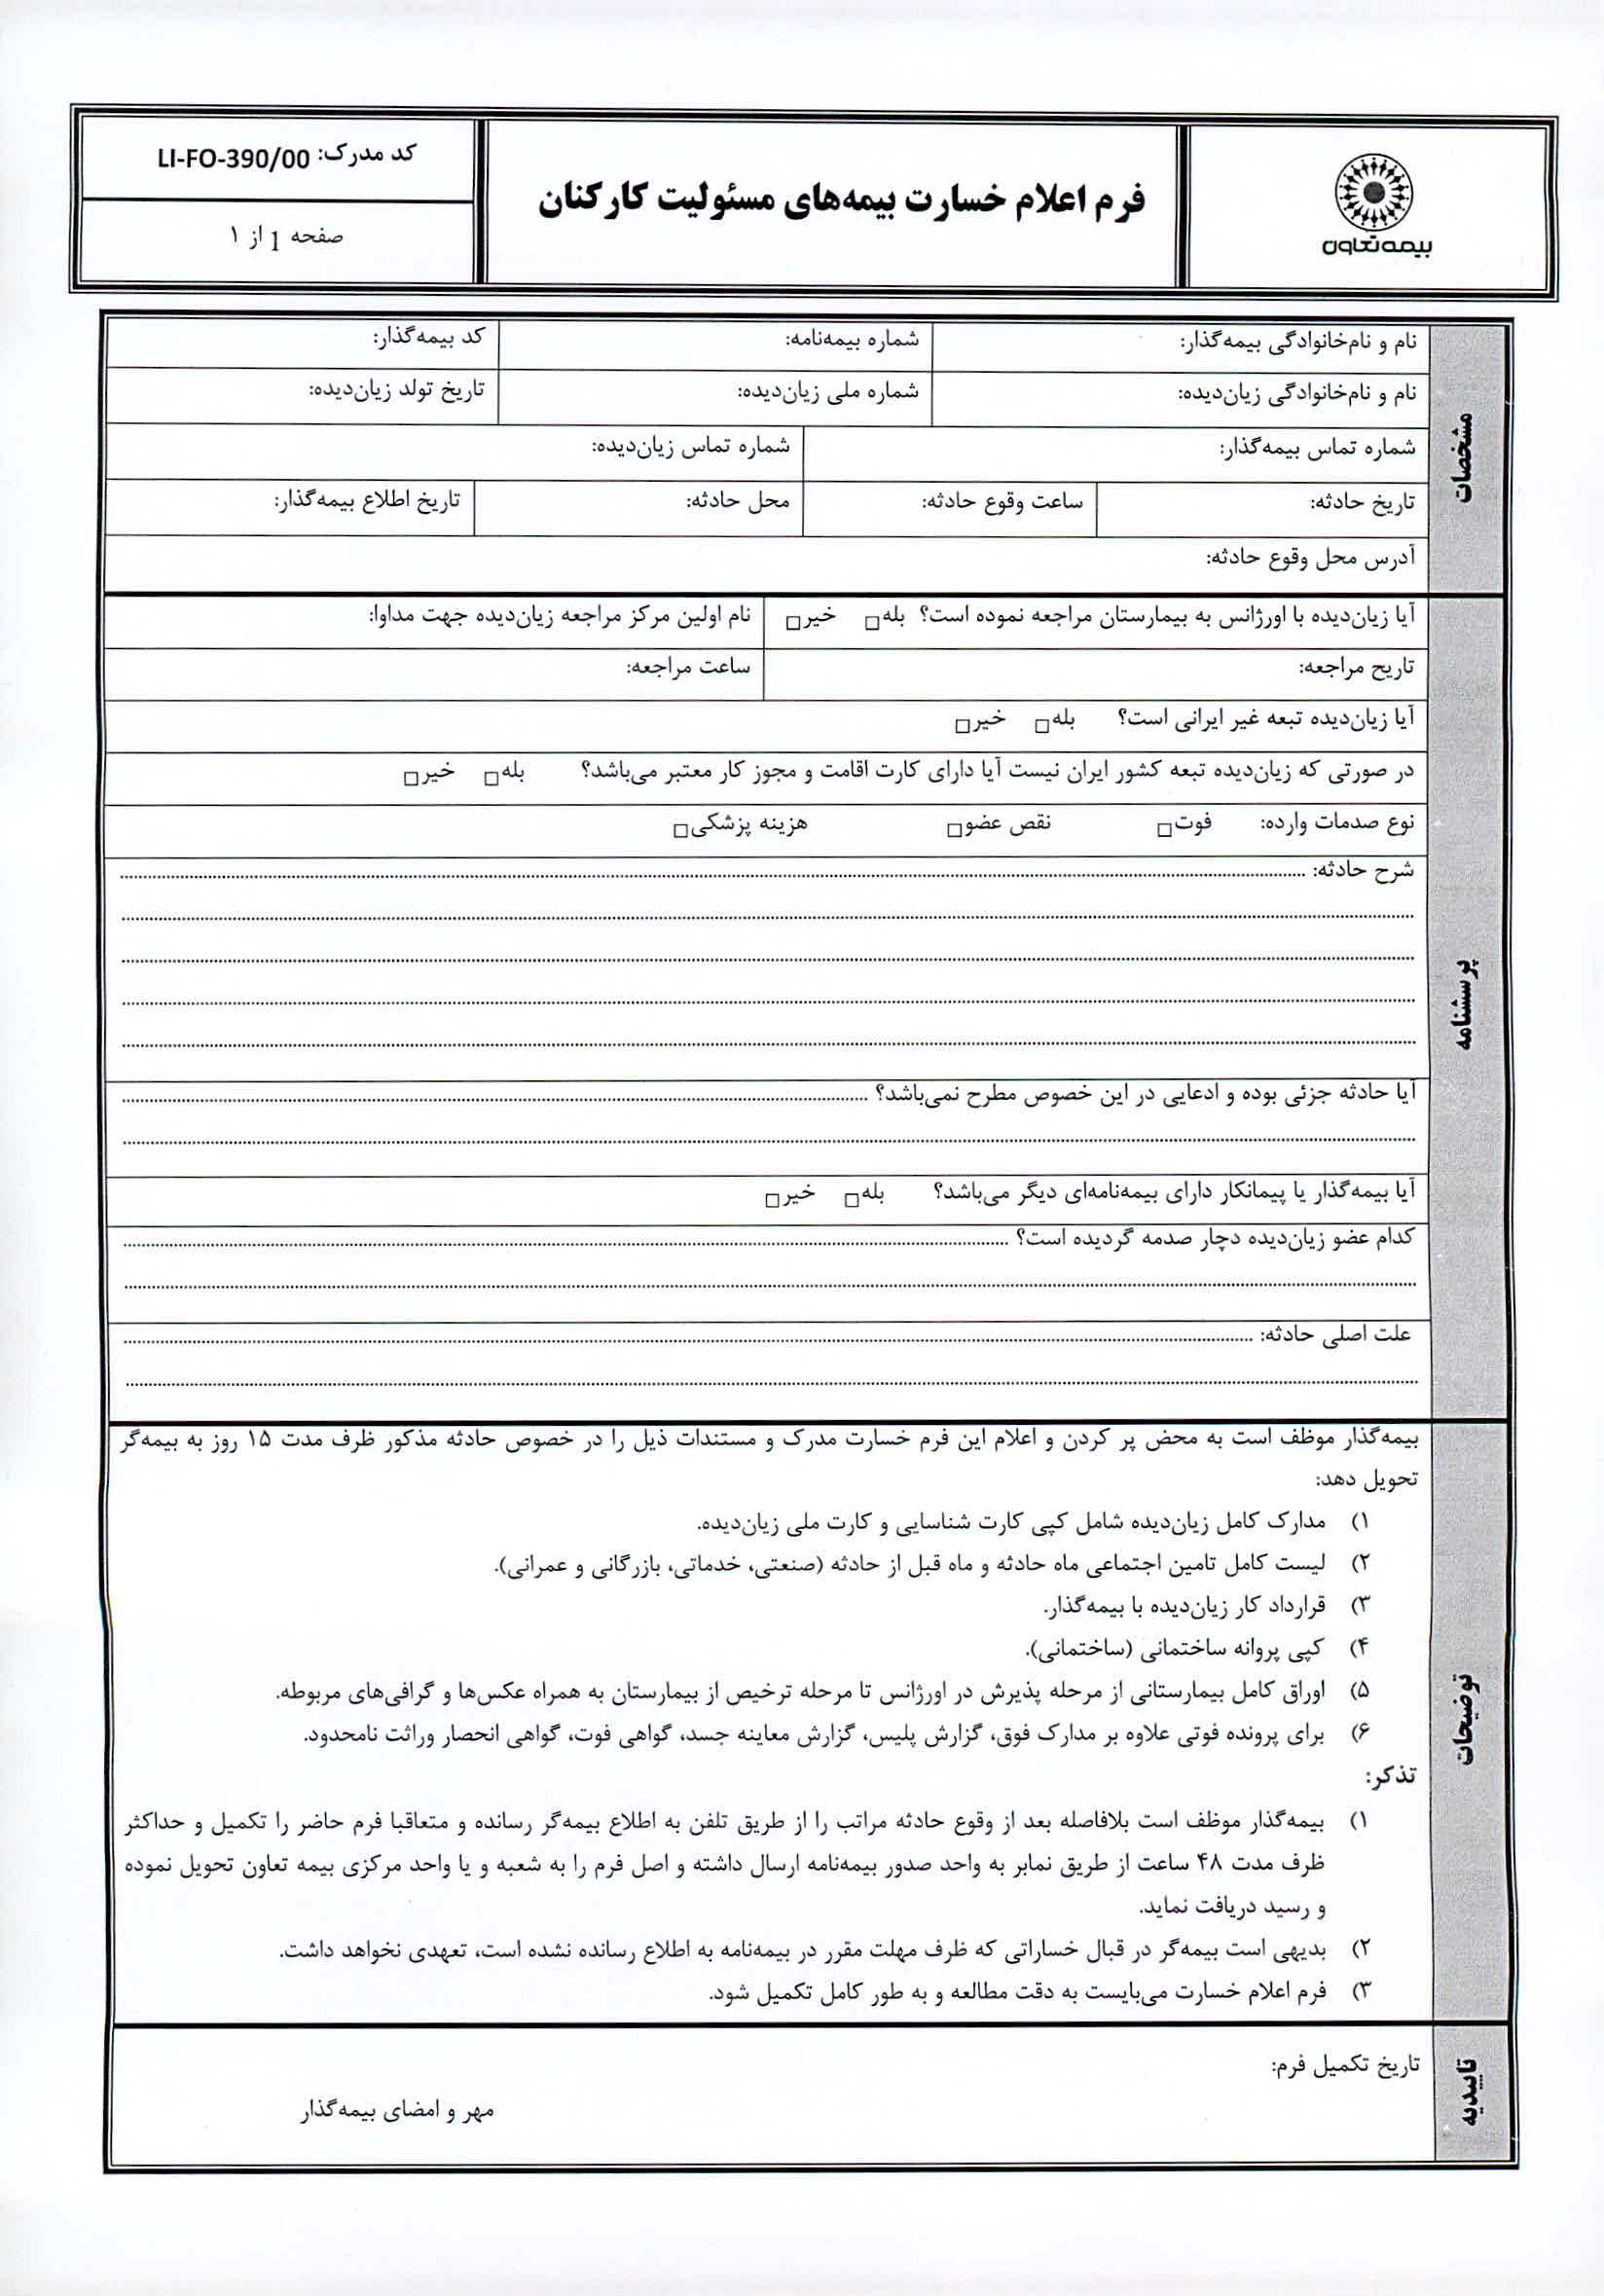 بیمه تعاون
فرم اعلام خسارت بیمه‌های مسئولیت کارکنان
کد مدرک: LI-FO-390/00
صفحه 1 از ۱
مشخصات
نام و نام‌خانوادگی بیمه‌گذار: شماره بیمه‌نامه: کد بیمه‌گذار:
نام و نام‌خانوادگی زیان‌دیده: شماره ملی زیان‌دیده: تاریخ تولد زیان‌دیده:
شماره تماس بیمه‌گذار: شماره تماس زیان‌دیده:
تاریخ حادثه: ساعت وقوع حادثه: محل حادثه: تاریخ اطلاع بیمه‌گذار:
آدرس محل وقوع حادثه:
پرسشنامه
آیا زیان‌دیده با اورژانس به بیمارستان مراجعه نموده است؟ بله□ خیر□ نام اولین مرکز مراجعه زیان‌دیده جهت مداوا:
تاریح مراجعه: ساعت مراجعه:
آیا زیان‌دیده تبعه غیر ایرانی است؟ بله□ خیر□
در صورتی که زیان‌دیده تبعه کشور ایران نیست آیا دارای کارت اقامت و مجوز کار معتبر می‌باشد؟ بله□ خیر□
نوع صدمات وارده: فوت□ نقص عضو□ هزینه پزشکی□
شرح حادثه:
آیا حادثه جزئی بوده و ادعایی در این خصوص مطرح نمی‌باشد؟
آیا بیمه‌گذار یا پیمانکار دارای بیمه‌نامه‌ای دیگر می‌باشد؟ بله□ خیر□
کدام عضو زیان‌دیده دچار صدمه گردیده است؟
علت اصلی حادثه:
توضیحات
بیمه‌گذار موظف است به محض پر کردن و اعلام این فرم خسارت مدرک و مستندات ذیل را در خصوص حادثه مذکور ظرف مدت ۱۵ روز به بیمه‌گر
تحویل دهد:
۱) مدارک کامل زیان‌دیده شامل کپی کارت شناسایی و کارت ملی زیان‌دیده.
۲) لیست کامل تامین اجتماعی ماه حادثه و ماه قبل از حادثه (صنعتی، خدماتی، بازرگانی و عمرانی).
۳) قرارداد کار زیان‌دیده با بیمه‌گذار.
۴) کپی پروانه ساختمانی (ساختمانی).
۵) اوراق کامل بیمارستانی از مرحله پذیرش در اورژانس تا مرحله ترخیص از بیمارستان به همراه عکس‌ها و گرافی‌های مربوطه.
۶) برای پرونده فوتی علاوه بر مدارک فوق، گزارش پلیس، گزارش معاینه جسد، گواهی فوت، گواهی انحصار وراثت نامحدود.
تذکر:
۱) بیمه‌گذار موظف است بلافاصله بعد از وقوع حادثه مراتب را از طریق تلفن به اطلاع بیمه‌گر رسانده و متعاقبا فرم حاضر را تکمیل و حداکثر
ظرف مدت ۴۸ ساعت از طریق نمابر به واحد صدور بیمه‌نامه ارسال داشته و اصل فرم را به شعبه و یا واحد مرکزی بیمه تعاون تحویل نموده
و رسید دریافت نماید.
۲) بدیهی است بیمه‌گر در قبال خساراتی که ظرف مهلت مقرر در بیمه‌نامه به اطلاع رسانده نشده است، تعهدی نخواهد داشت.
۳) فرم اعلام خسارت می‌بایست به دقت مطالعه و به طور کامل تکمیل شود.
تاییدیه
تاریخ تکمیل فرم:
مهر و امضای بیمه‌گذار